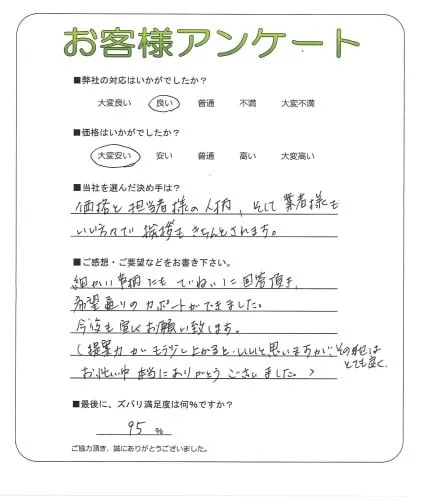 お客様アンケート
■弊社の対応はいかがでしたか？
大変良い 良い 普通 不満 大変不満
■価格はいかがでしたか？
大変安い 安い 普通 高い 大変高い
■当社を選んだ決め手は？
価格と担当者様の人柄，そして業者様も
いい方々で挨拶もきちんとされます。
■ご感想・ご要望などをお書き下さい。
細かい事柄にもていねいに回答頂き，
希望通りのカポートができました。
今後も宜しくお願い致します。
（提案力がもう少し上がるといいと思いますが、その他はとても良く、
お忙い中本当にありがとうございました。）
■最後に、ズバリ満足度は何％ですか？
95 %
ご協力頂き、誠にありがとうございました。